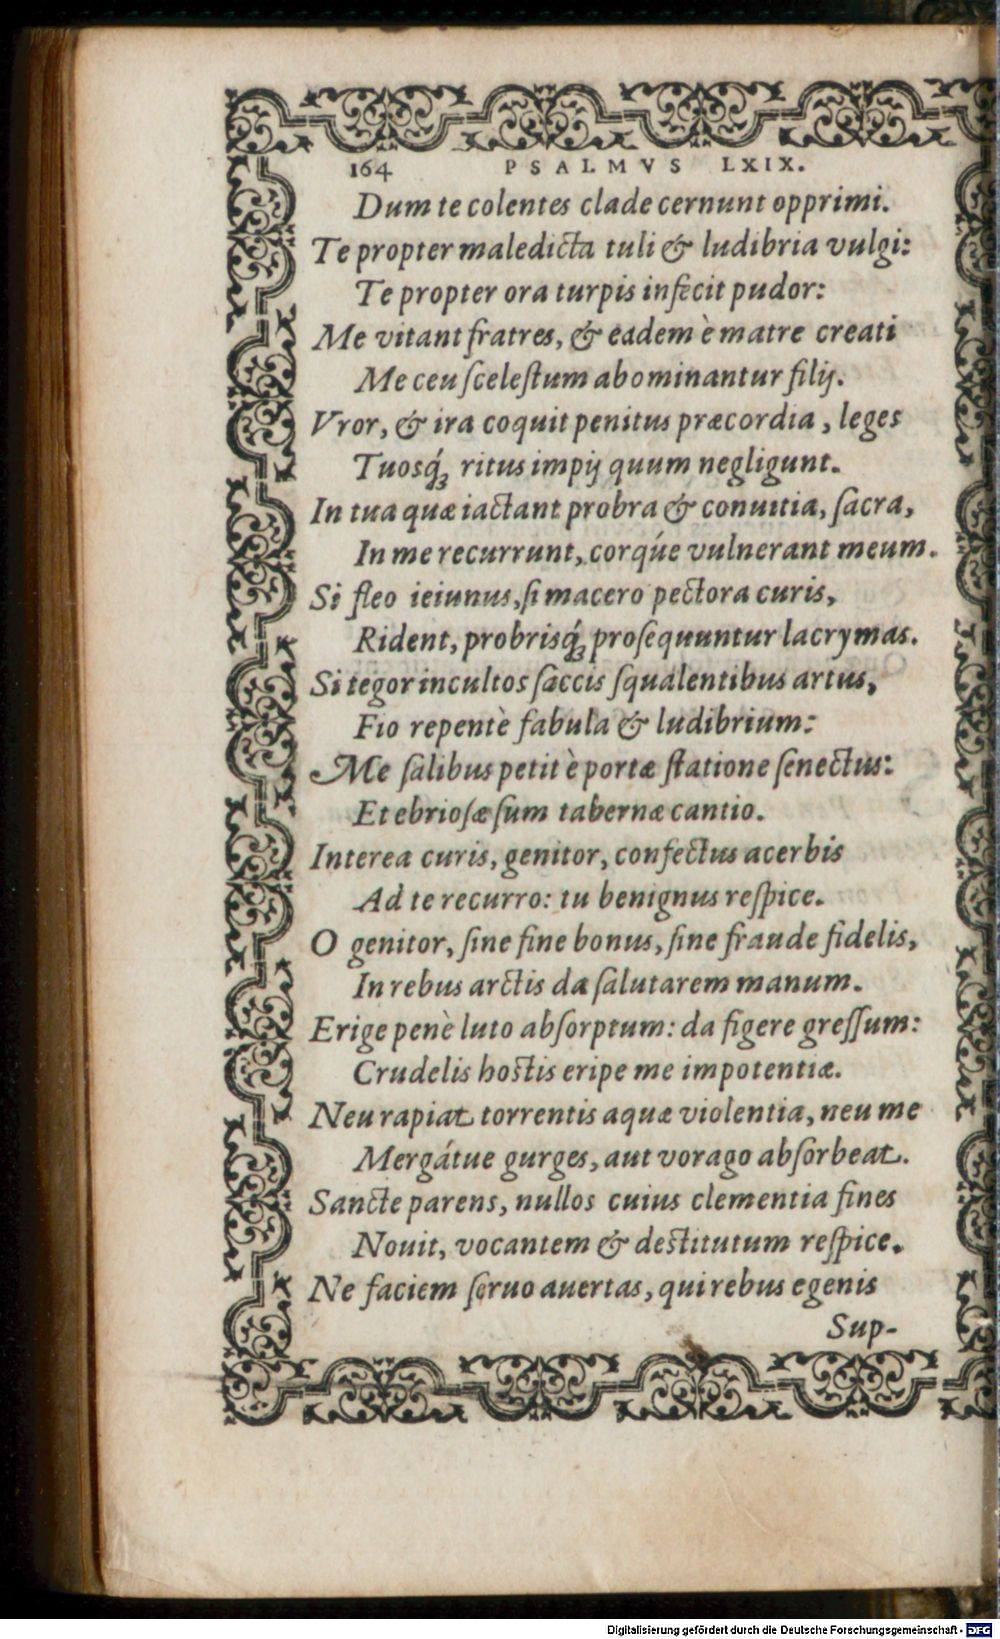 164 PSALMVS LXIX.
Dum te colentes clade cernunt opprimi.
Te propter maledicta tuli & ludibria vulgi:
Te propter ora turpis infecit pudor:
Me vitant fratres, & eadem è matre creati
Me ceu ſceleſtum abominantur filij.
Vror, & ira coquit penitus præcordia, leges
Tuosq́ꝫ ritus impij quum negligunt.
In tua quæ iactant probra & conuitia, ſacra,
In me recurrunt, corq́ue vulnerant meum.
Si fleo ieiunus, ſi macero pectora curis,
Rident, probrisq́ꝫ proſequuntur lacrymas.
Si tegor incultos ſaccis ſqualentibus artus,
Fio repentè fabula & ludibrium:
Me ſalibus petit è portæ ſtatione ſenectus:
Et ebrioſæ ſum tabernæ cantio.
Interea curis, genitor, confectus acerbis
Ad te recurro: tu benignus reſpice.
O genitor, ſine fine bonus, ſine fraude fidelis,
In rebus arctis da ſalutarem manum.
Erige penè luto abſorptum: da figere greſſum:
Crudelis hostis eripe me impotentiæ.
Neu rapiat torrentis aquæ violentia, neu me
Mergátue gurges, aut vorago abſorbeat.
Sancte parens, nullos cuius clementia fines
Nouit, vocantem & destitutum reſpice.
Ne faciem ſeruo auertas, qui rebus egenis
Sup-
Digitalisierung gefördert durch die Deutsche Forschungsgemeinschaft - DFG